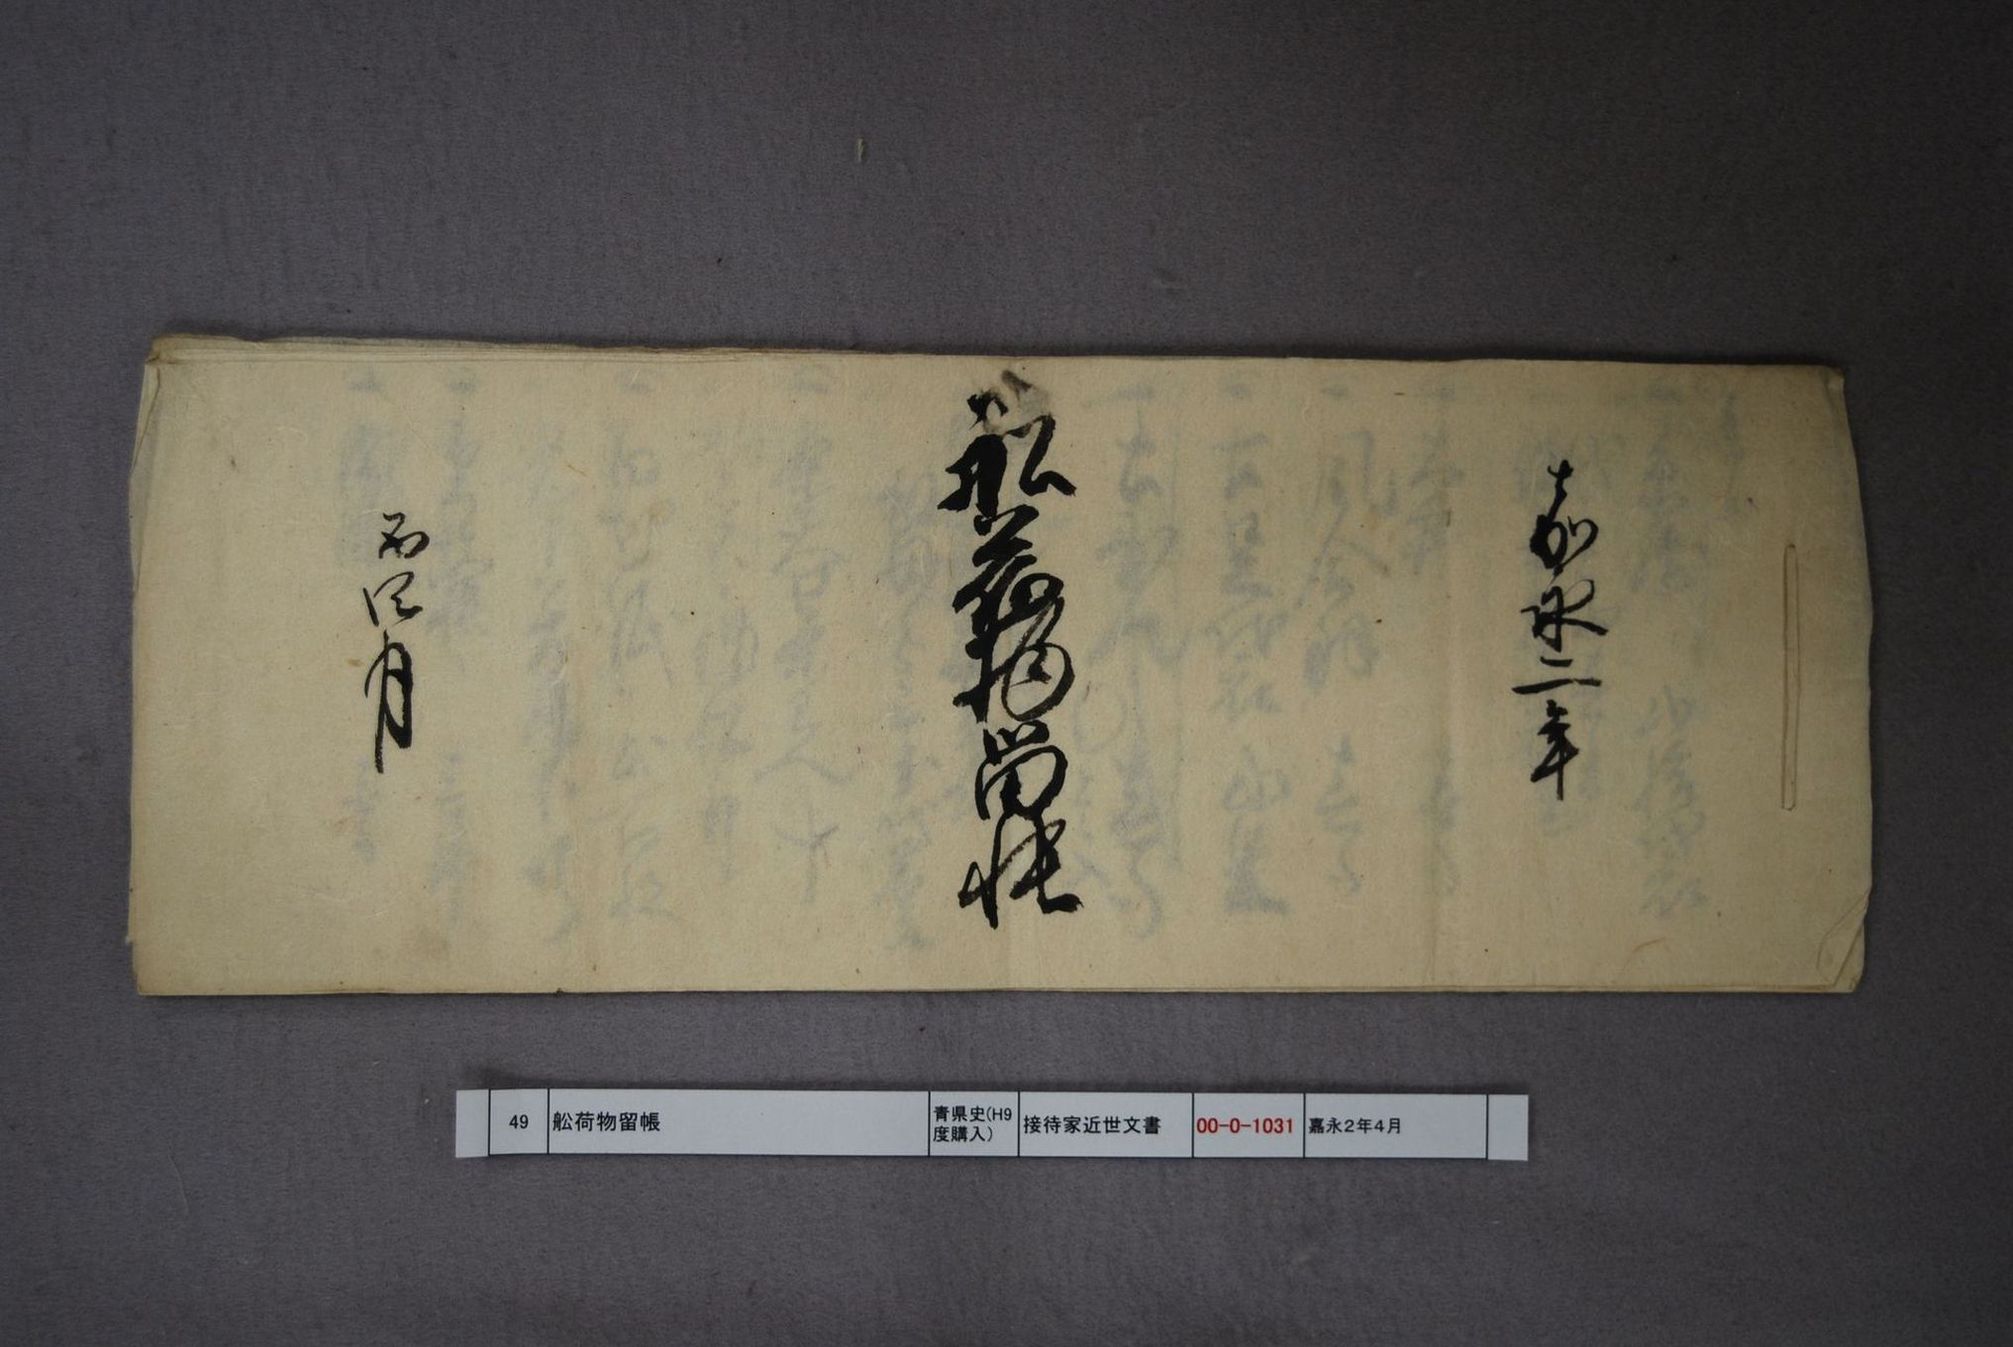 嘉永二年
舩荷物留帳
酉四月
49
舩荷物留帳
青県史(H9
度購入)
接待家近世文書
00-0-1031
嘉永2年4月